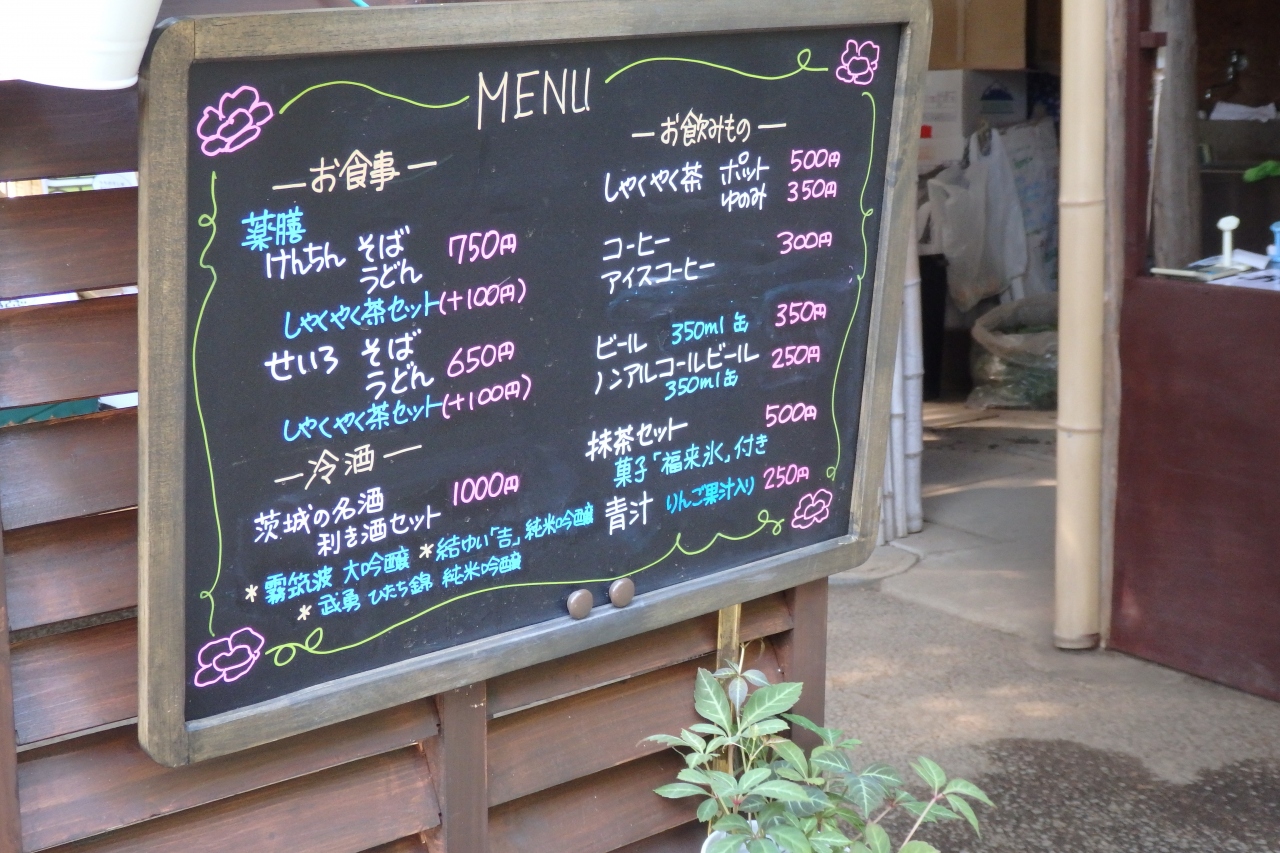 MENU
—お食事—
薬膳
けんちん そば 750円
うどん
しゃくやく茶セット(+100円)
せいろ そば 650円
うどん
しゃくやく茶セット(+100円)
—冷酒—
茨城の名酒 1000円
利き酒セット
*霧筑波 大吟醸 *結ゆい「吉」純米吟醸
*武勇 ひたち錦 純米吟醸
—お飲みもの—
しゃくやく茶 ポット 500円
ゆのみ 350円
コーヒー 300円
アイスコーヒー
ビール 350ml缶 350円
ノンアルコールビール 250円
350ml缶
抹茶セット 500円
菓子「福来氷」付き
青汁 りんご果汁入り 250円